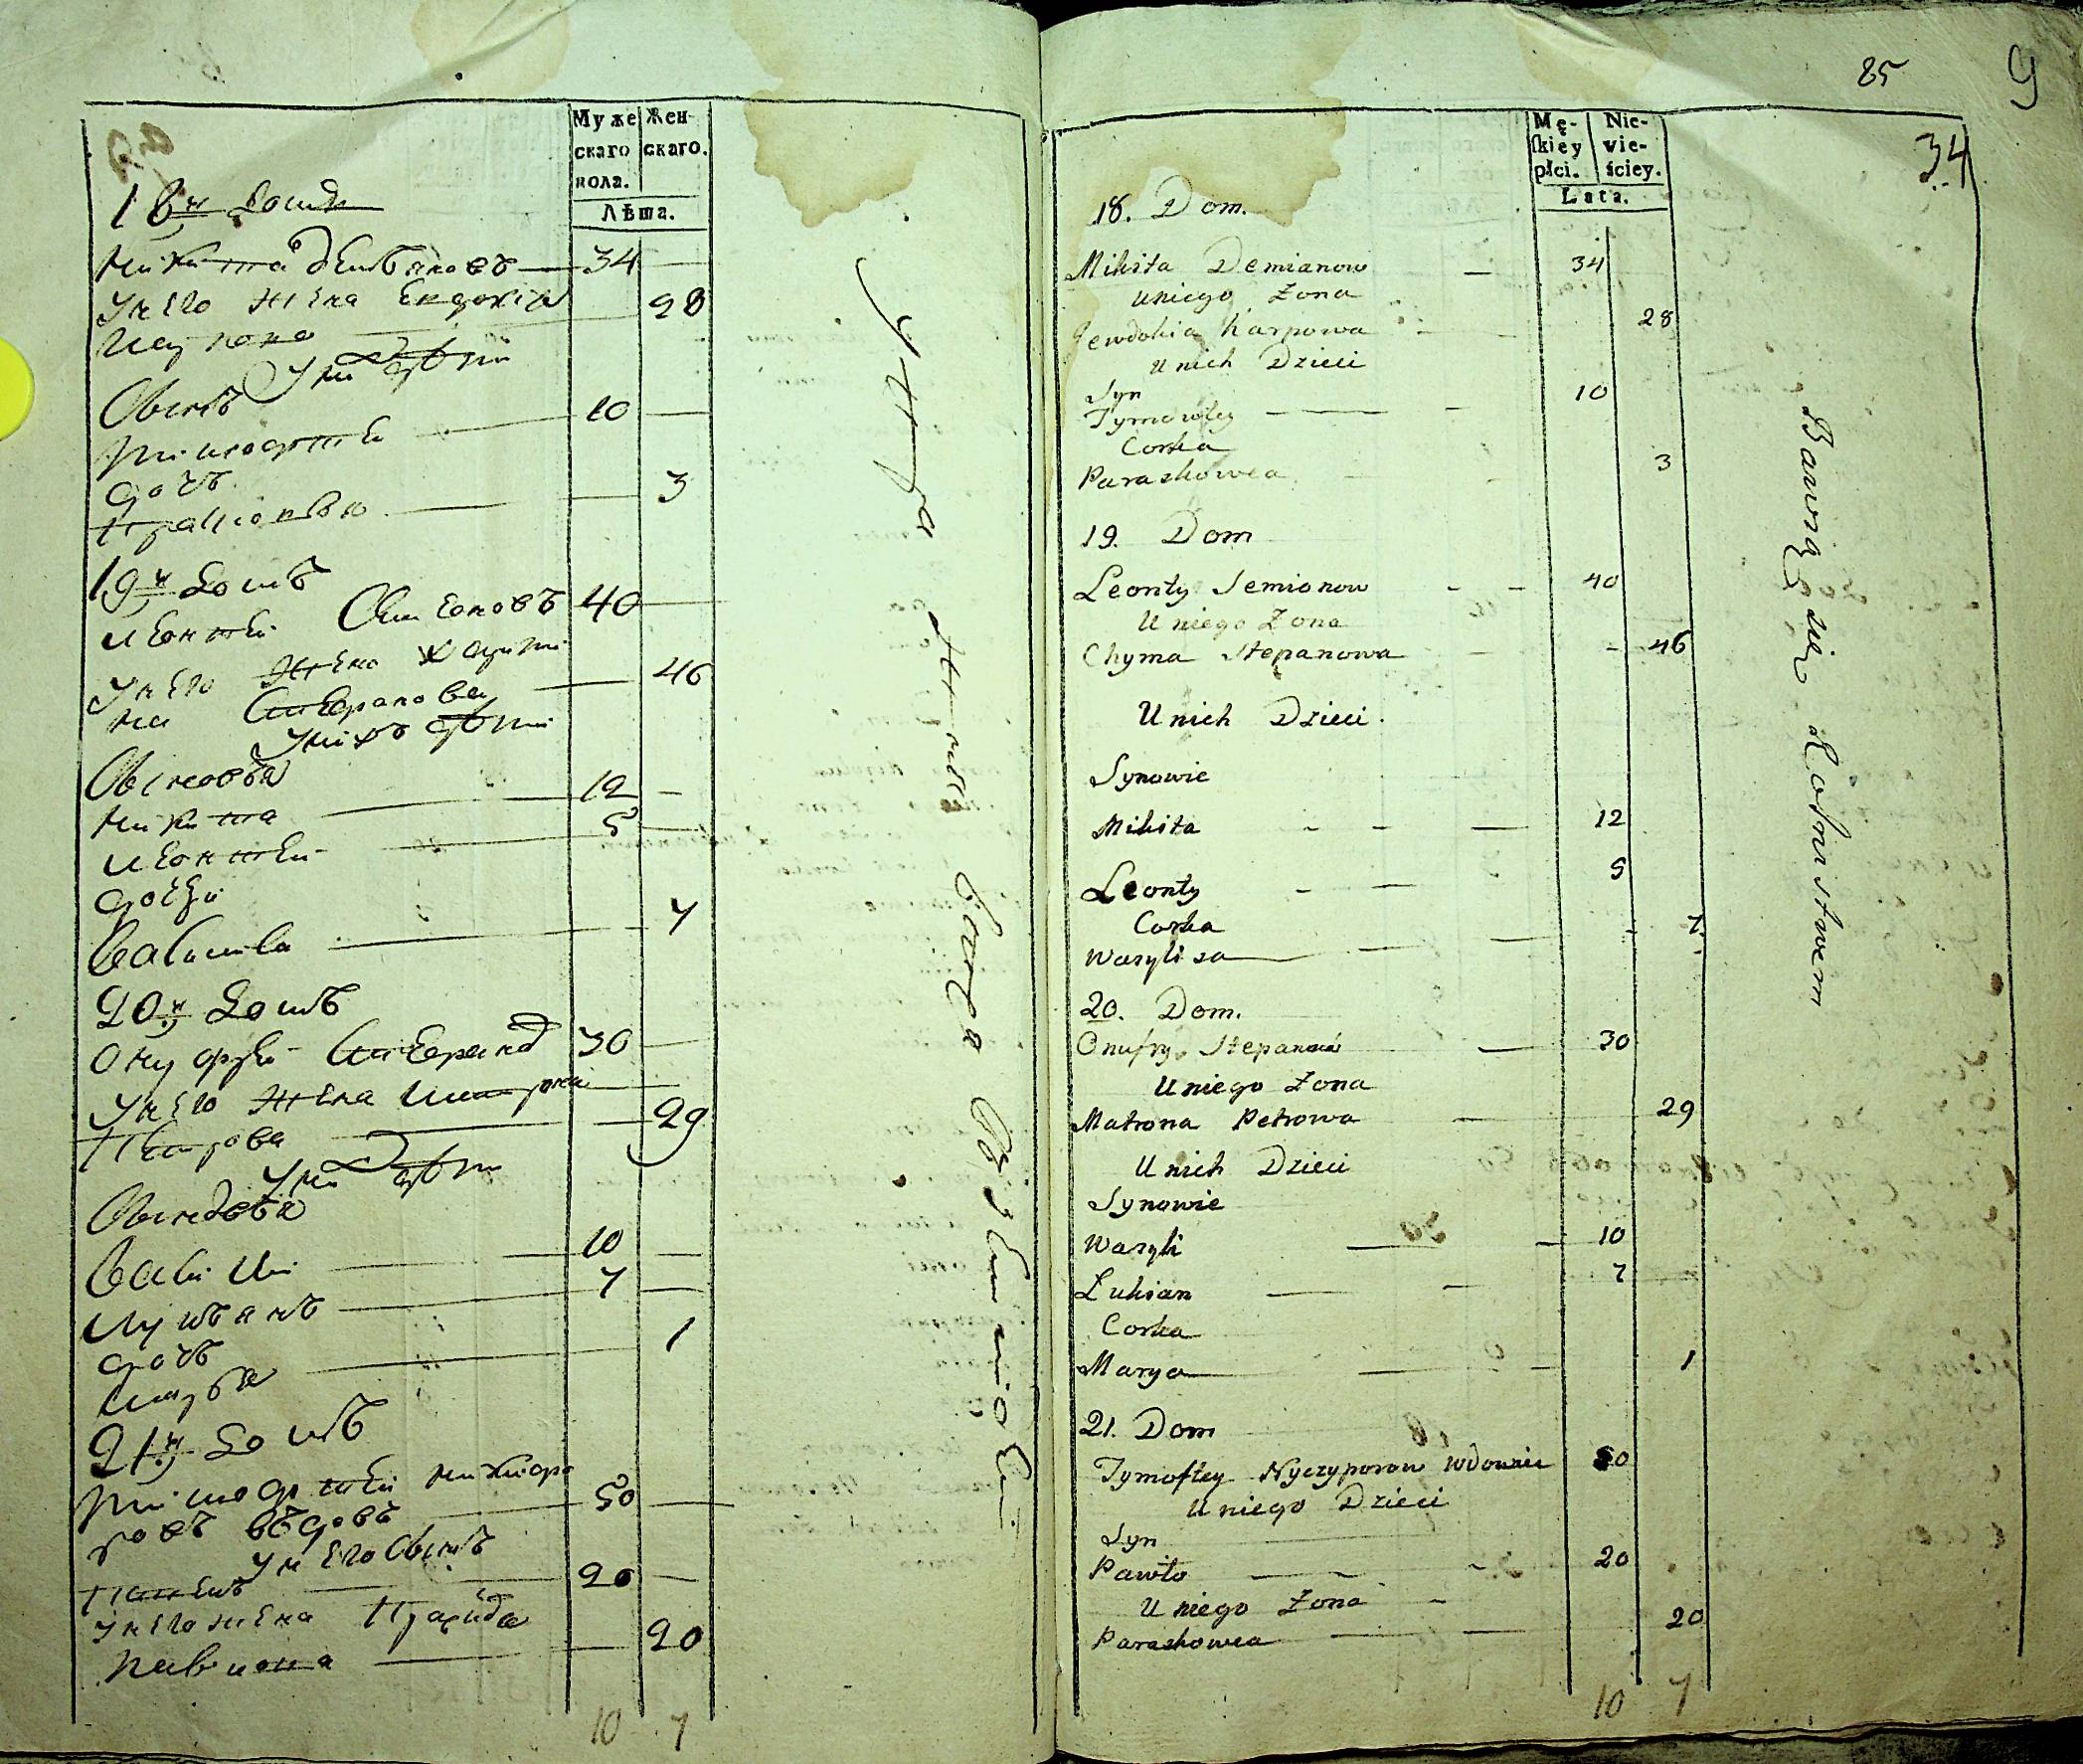 Муже
скаго
пола.
Жен-
скаго.
Лѣта.
18й домъ
Никита демьяновъ 34
У него жена Евдокия 28
У ни дѣти
Синъ 10
Тимофтей
дочь 3
19й домъ
Леонтей Симеоновъ 40
У него жена 46
Степанова
У нихъ дѣти
Синовья
Никита 12
Леонтей 5
дочъ
Василиса 7
20й домъ
Онуфрей 30
У него жена
Петрова 29
У ни дѣти
Синовья
Василий 10
Лукьянъ 7
дочъ 1
Марья
21й домъ
Тимофтей Никифо
ровъ вдовъ 50
У него Синъ
20
У него жена
20
10 7
85
9
34
Mę-
skiey
płci.
Nie-
wie-
ściey.
Lata.
18. Dom.
Mikita Demianow 34
U niego Żona
Jewdokia Karpowa 28
U nich Dzieci
Syn 10
Tymoftey
Corka
Paraskowea 3
19. Dom
Leonty Semionow 40
U niego Żona
Chyma Stepanowa 46
U nich Dzieci.
Synowie
Mikita 12
Leonty 5
Corka 7.
Wasylisa
20. Dom.
Onufry Stepanow 30
U niego Żona
Matrona Petrowa 29
U nich Dzieci
Synowie
Wasyli 10
Lukian 7
Corka
Marya 1
21. Dom
Tymoftey Nyczyporow Wdowiec 50
U niego Dzieci
Syn
Pawło 20
U niego Żona
Paraskowea 20
10 7
Bawią się Rolnistwem